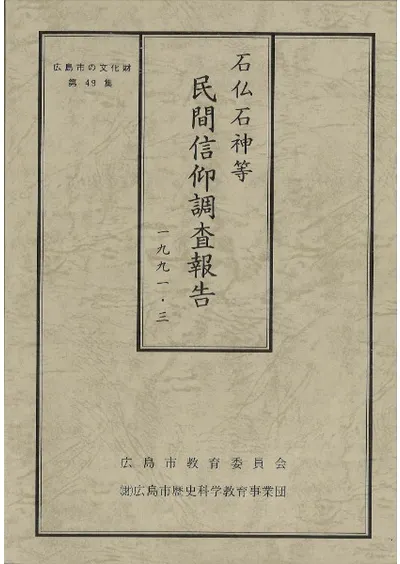 広島市の文化財
第49集
石仏石神等
民間信仰調査報告
一九九一・三
広島市教育委員会
㈶広島市歴史科学教育事業団